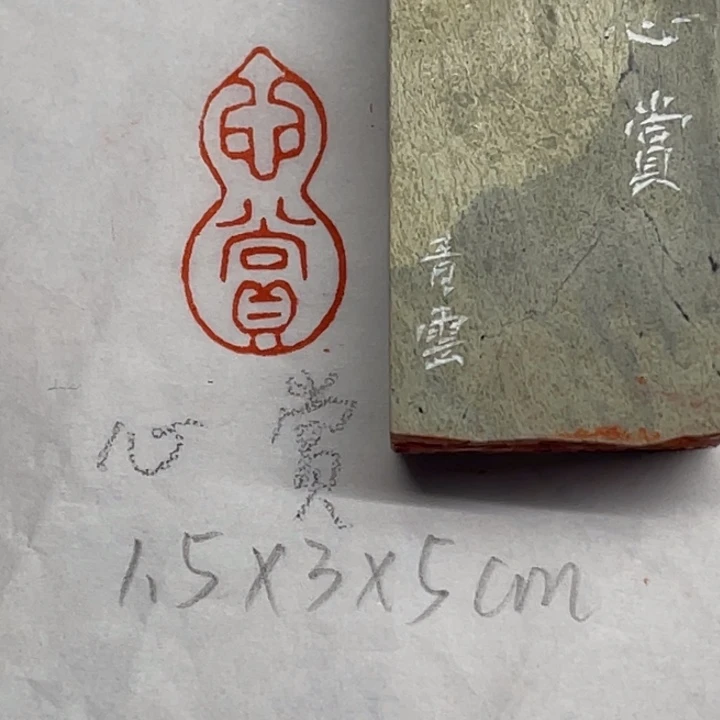 心賞
心賞
青雲
心赏
1.5X3X5cm